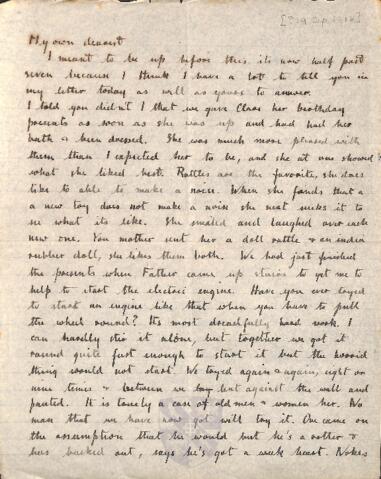 My own dearest
I meant to be up before this its now half past
seven because I think I have a lot to tell you in
my letter today as well as yours to answer.
I told you didn't I that we gave Clare her birthday
presents as soon as she was up and had had her
bath & been dressed. She was much more pleased with
them than I expected her to be, and she at once showed
what she liked best. Rattles are the favorite, she does
like to able to make a noise. When she finds that a
a new toy does not make a noise she next sucks it to
see what its like. She smiled and laughed over each
new one. You mother sent her a doll rattle & an india
rubber doll, she likes them both. We had just finished
the presents when Father came up stairs to get me to
help to start the electric engine. Have you ever tryed
to start an engine like that when you have to pull
the wheel round? Its most dreadfully hard work. I
can hardly stir it alone, but together we got it
round quite fast enough to start it but the horrid
thing would not start. We tryed again & again, eight or
nine times & between we lay against the wall and
panted. It is truly a case of old men & women here. No
man that we have now got will try it. One came on
the assumption that he would but he's a rotter &
has backed out, says he's got a weak heart. Nokes